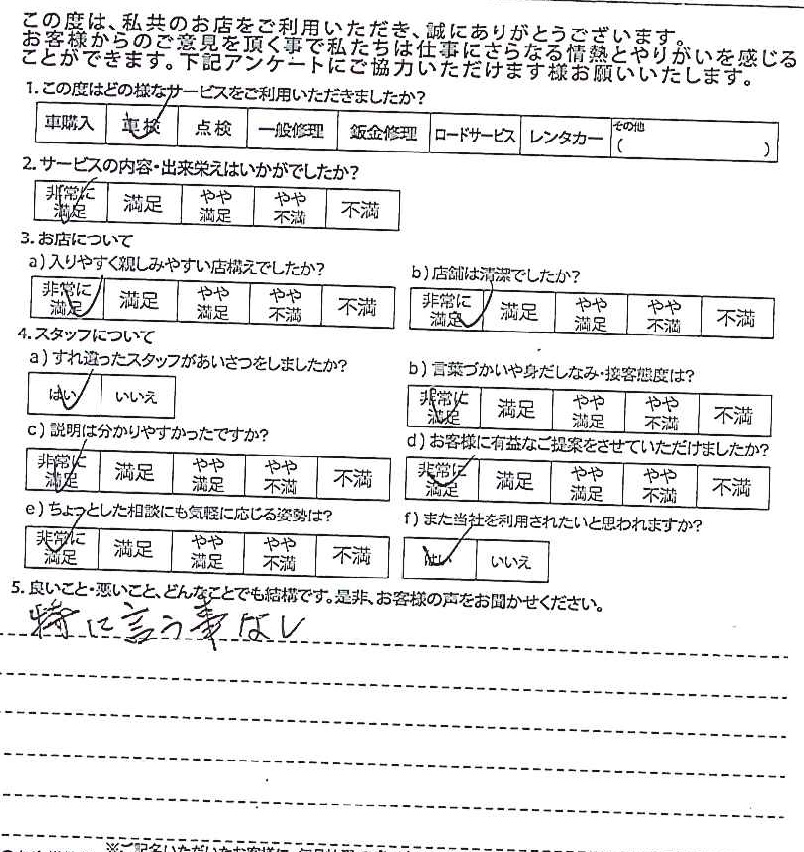 この度は、私共のお店をご利用いただき、誠にありがとうございます。
お客様からのご意見を頂く事で私たちは仕事にさらなる情熱とやりがいを感じる
ことができます。下記アンケートにご協力いただけます様お願いいたします。
1.この度はどの様なサービスをご利用いただきましたか?
車購入 車検 点検 一般修理 鈑金修理 ロードサービス レンタカー その他( )
2.サービスの内容・出来栄えはいかがでしたか?
非常に満足 満足 やや満足 やや不満 不満
3.お店について
a)入りやすく親しみやすい店構えでしたか?
非常に満足 満足 やや満足 やや不満 不満
b)店舗は清潔でしたか?
非常に満足 満足 やや満足 やや不満 不満
4.スタッフについて
a)すれ違ったスタッフがあいさつをしましたか?
はい いいえ
b)言葉づかいや身だしなみ・接客態度は?
非常に満足 満足 やや満足 やや不満 不満
c)説明は分かりやすかったですか?
非常に満足 満足 やや満足 やや不満 不満
d)お客様に有益なご提案をさせていただけましたか?
非常に満足 満足 やや満足 やや不満 不満
e)ちょっとした相談にも気軽に応じる姿勢は?
非常に満足 満足 やや満足 やや不満 不満
f)また当社を利用されたいと思われますか?
はい いいえ
5.良いこと・悪いこと、どんなことでも結構です。是非、お客様の声をお聞かせください。
特に言う事なし
※ご記名いただいたお客様に